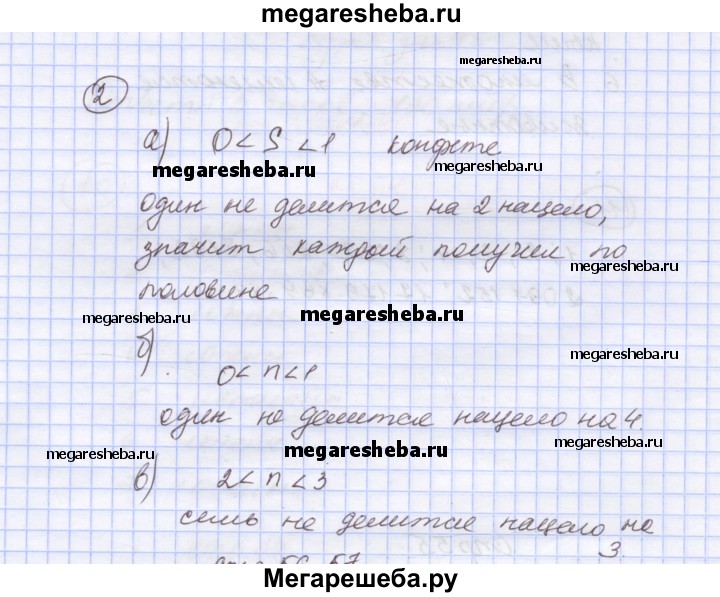 megaresheba.ru
megaresheba.ru
2
а) 0 < S < 1 конфете
megaresheba.ru megaresheba.ru
один не делится на 2 нацело,
значит каждый получил по
megaresheba.ru
половине
megaresheba.ru megaresheba.ru
б)
megaresheba.ru
0 < n < 1
один не делится нацело на 4.
megaresheba.ru megaresheba.ru megaresheba.ru
в) 2 < n < 3
семь не делится нацело на
3.
56-57
Мегарешеба.ру